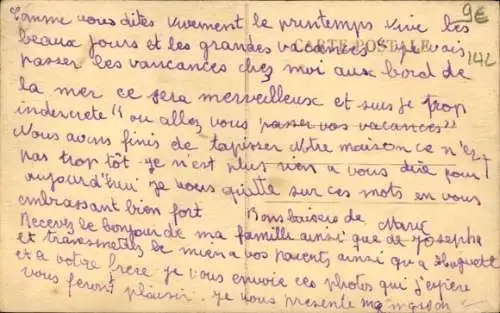 Comme vous dites vivement le printemps vive les
9€
beaux jours et les grandes vacances" je vais
CARTE POSTALE
142
passer les vancances chez moi aux bord de
la mer ce sera merveilleux et suis je trop
indescrete "ou allez vous passer vos vacances"
Nous avons finis de tapisser Notre maison ce n'est
pas trop tôt je n'est plus rien a vous dire pour
aujourd'hui je vous quitte sur ces mots en vous
embrassant bien fort Bons baisers de Marie
Recevez le bonjour de ma famille ainsi que de Josephe
et transmettez le mien a vos parents ainsi qu'a Huguette
et a votre frere je vous envoie ces photos qui j'espère
vous feront plaisir. je vous presente ma maison